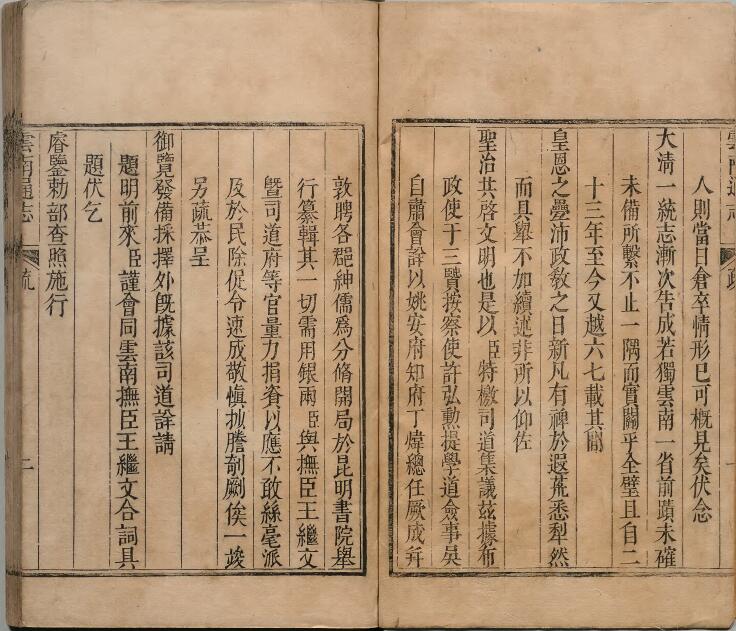 人則當日倉卒情形已可概見矣伏念
大淸一統志漸次告成若獨雲南一省前蹟未確
未備所繫不止一隅而實關乎全璧且自二
十三年至今又越六七載其間
皇恩之疊沛政敎之日新凡有裨於遐荒悉犁然
而具舉不加續述非所以仰佐
聖治共啓文明也是以臣特檄司道集議玆據布
政使于三賢按察使許弘勲提學道僉事吳
自肅會詳以姚安府知府丁煒總任厥成幷
敦聘各郡紳儒爲分脩開局於昆明書院舉
行纂輯其一切需用銀兩臣與撫臣王繼文
曁司道府等官量力捐資以應不敢絲毫派
及於民除促令速成敬愼抝謄剞劂俟一竣
另疏恭呈
御覽發備採擇外旣據該司道詳請
題明前來臣謹會同雲南撫臣王繼文合詞具
題伏乞
睿鑒勅部查照施行
雲南通志
疏
二